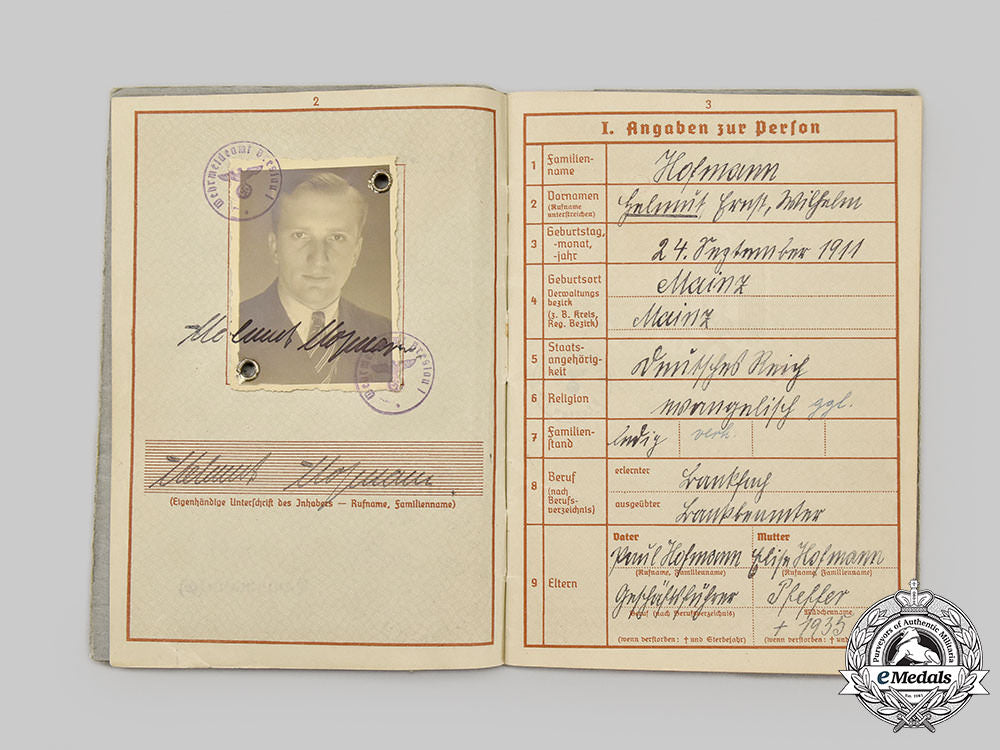 2
Wehrmeldeamt Breslau I
Helmut Hofmann
Wehrm
Breslau I
Helmut Hofmann.
(Eigenhändige Unterschrift des Inhabers — Rufname, Familienname)
3
I. Angaben zur Person
1 Familien-
name
Hofmann
2 Vornamen
(Rufname
unterstreichen)
Helmut, Ernst, Wilhelm
3 Geburtstag,
-monat,
-jahr
24. September 1911
4 Geburtsort
Verwaltungs
bezirk
(z. B. Kreis,
Reg. Bezirk)
Mainz
Mainz
5 Staats-
angehörig-
keit
Deutsches Reich
6 Religion
evangelisch ggl.
7 Familien-
stand
ledig verh.
8 Beruf
(nach
Berufs-
verzeichnis)
erlernter
Bankfach
ausgeübter
Bankbeamter
9 Eltern
Vater Mutter
Paul Hofmann Elise Hofmann
(Rufname, Familienname) (Rufname, Familienname)
Geschäftsführer
Beruf (nach Berufsverzeichnis) (Mädchenname)
† 1935
(wenn verstorben: † und Sterbejahr) (wenn verstorben: † und
Purveyors of Authentic Militaria
eMedals